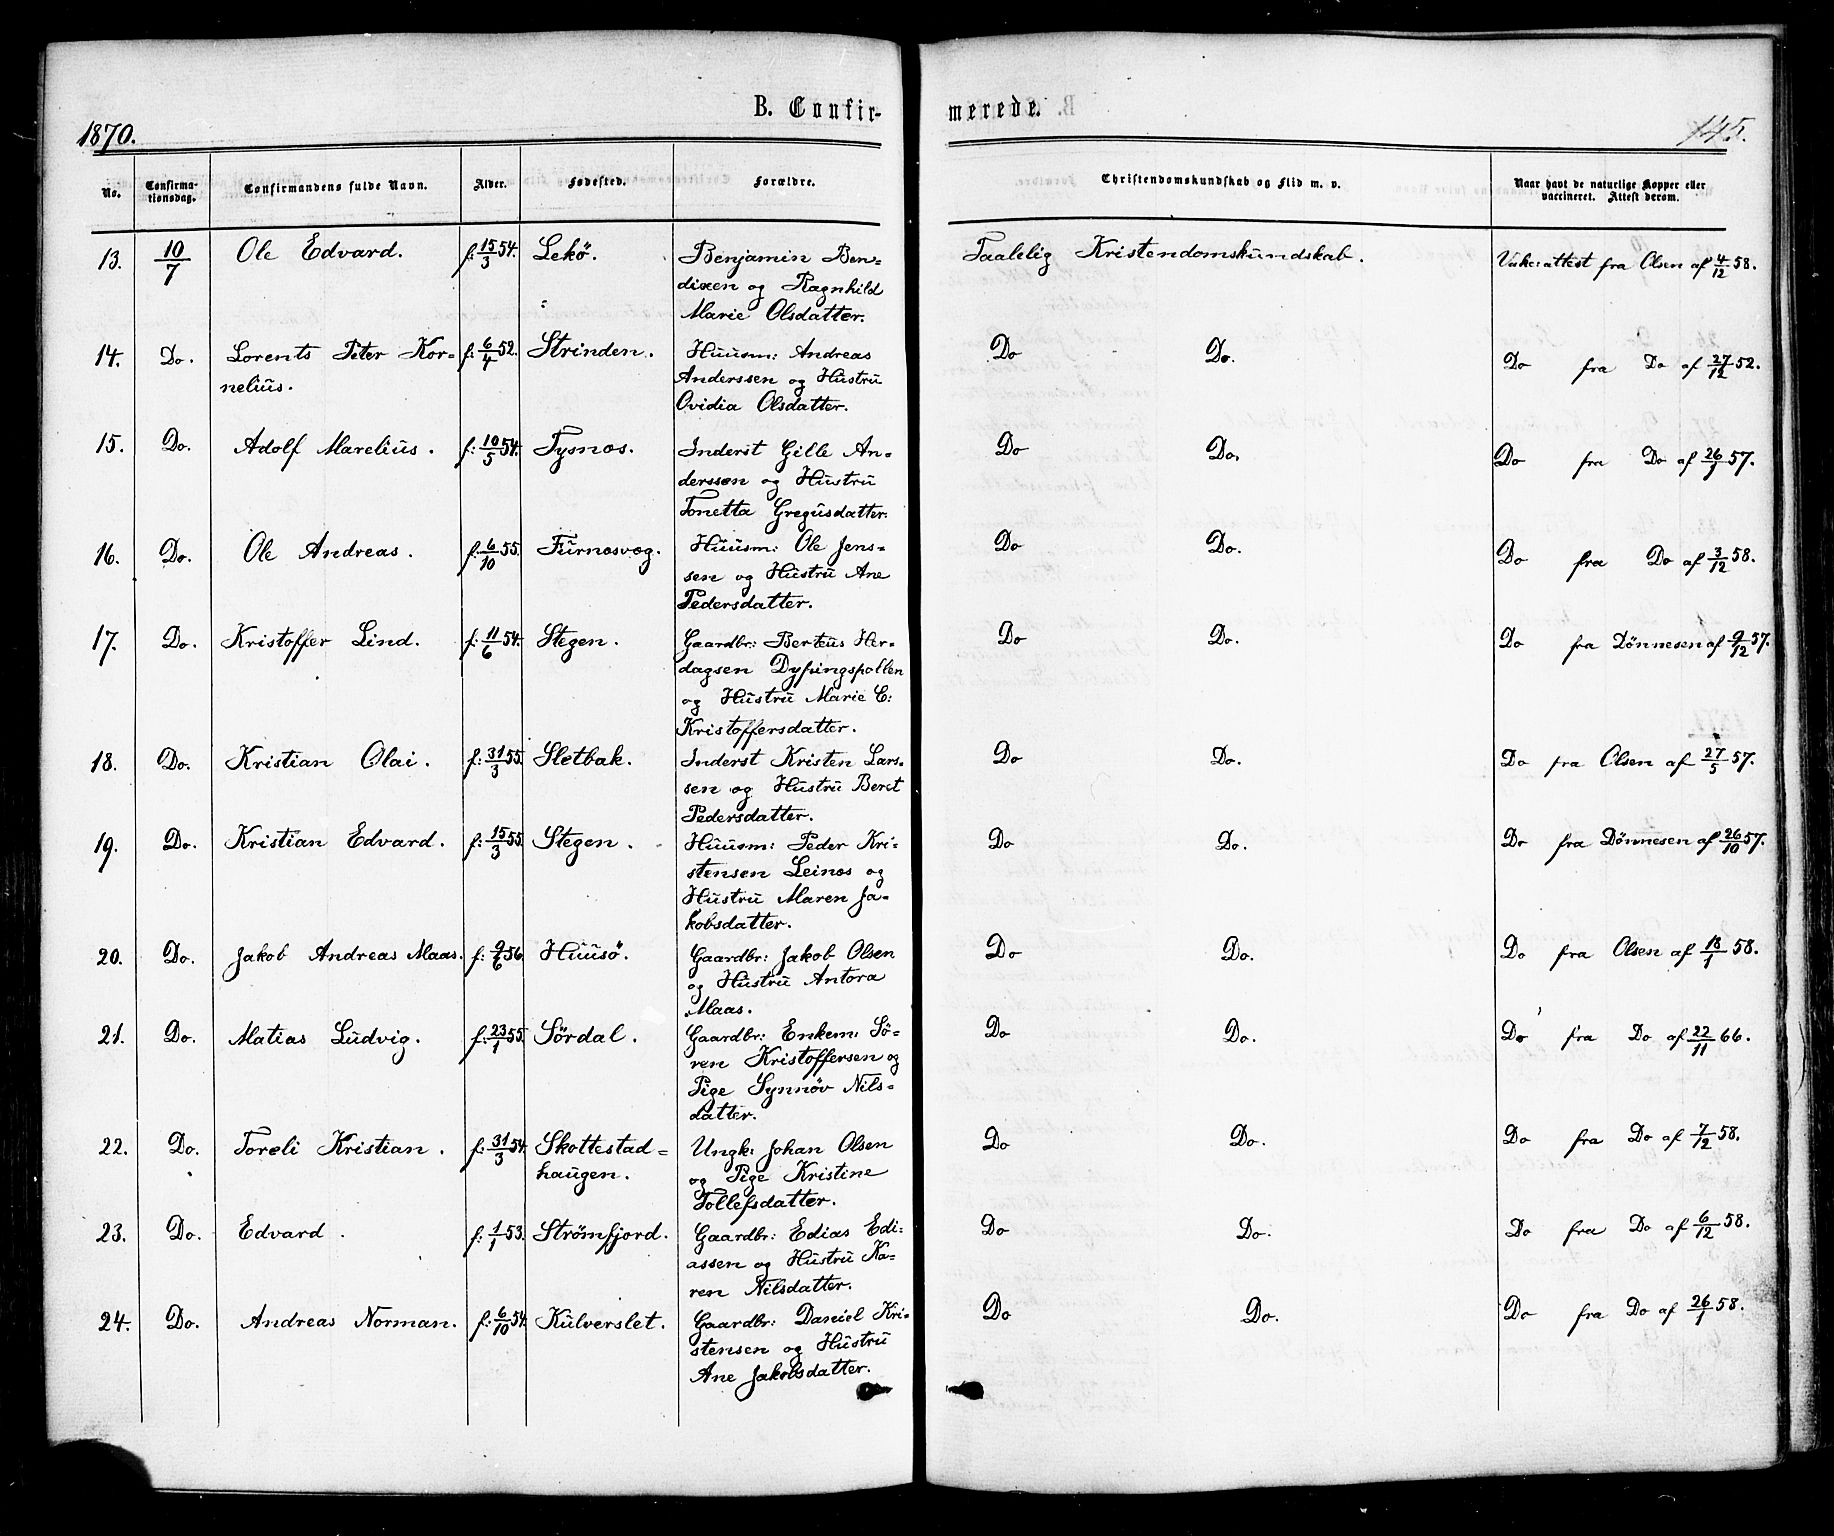 B. Confir-
merede.
1870.
145.
No.
Confirma-
tionsdag.
Confirmandens fulde Navn.
Alder.
Fødested.
Forældre.
Christendomskundskab og Flid m. v.
Naar havt de naturlige Kopper eller
vaccineret. Attest derom.
13. 10/7 Ole Edvard. f: 15/3 54. Lekö. Benjamin Ben- Taalelig Kristendomskundskab. attest fra Olsen af 4/12 58.
dixen og Ragnhild
Marie Olsdatter.
14. Do. Lorents Peter Kor- f: 6/4 52. Strinden. Huusm: Andreas Do Do. Do fra Do af 27/12 52.
nelius. Anderssen og Hustru
Ovidia Olsdatter.
15. Do. Adolf Marelius. f: 10/5 54. Tysnæs. Inderst Gille An- Do Do. Do fra Do af 26/1 57.
derssen og Hustru
Tonetta Gregusdatter.
16. Do. Ole Andreas. f: 6/10 55. Furnesvæg. Huusm: Ole Jens- Do Do. Do fra Do af 3/12 58.
sen og Hustru Ane
Pedersdatter.
17. Do. Kristoffer Lind. f: 11/6 54. Stegen. Gaardbr: Berteus Her- Do Do. Do fra Dönnesen af 9/12 57.
dagsen Dypingspollen
og Hustru Marie C:
Kristoffersdatter.
18. Do. Kristian Olai. f: 31/3 55. Sletbak. Inderst Kristen Lars- Do Do. Do fra Olsen af 27/5 57.
sen og Hustru Beret
Pedersdatter.
19. Do. Kristian Edvard. f: 15/3 55. Stegen. Huusm: Peder Kri- Do Do. Do fra Dönnesen af 26/10 57.
stensen Leines og
Hustru Maren Ja-
kobsdatter.
20. Do. Jakob Andreas Maas. f: 9/6 56. Huusö. Gaardbr: Jakob Olsen Do Do. Do fra Olsen af 18/1 58.
og Hustru Antora
Maas.
21. Do. Matias Ludvig. f: 23/1 55. Sördal. Gaardbr: Enkem: Sö- Do Do. Do fra Do af 22/11 66.
ren Kristoffersen og
Pige Synnöv Nils-
datter.
22. Do. Toreli Kristian. f: 31/3 54. Skottestad- Ungk: Johan Olsen Do Do. Do fra Do af 7/12 58.
haugen. og Pige Kristine
Tollefsdatter.
23. Do. Edvard. f: 1/1 53. Strömfjord. Gaardbr: Edias Edi- Do Do. Do fra Do af 6/12 58.
assen og Hustru Ka-
ren Nilsdatter.
24. Do. Andreas Norman. f: 6/10 54. Kulverslet. Gaardbr: Daniel Kri- Do Do. Do fra Do af 26/1 58.
stensen og Hustru
Ane Jakobsdatter.